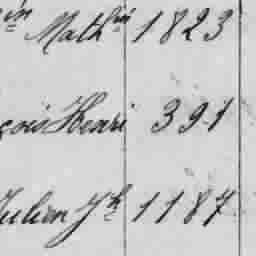 in Math.in 1823
çois Henri 391
Julien Jh 1187